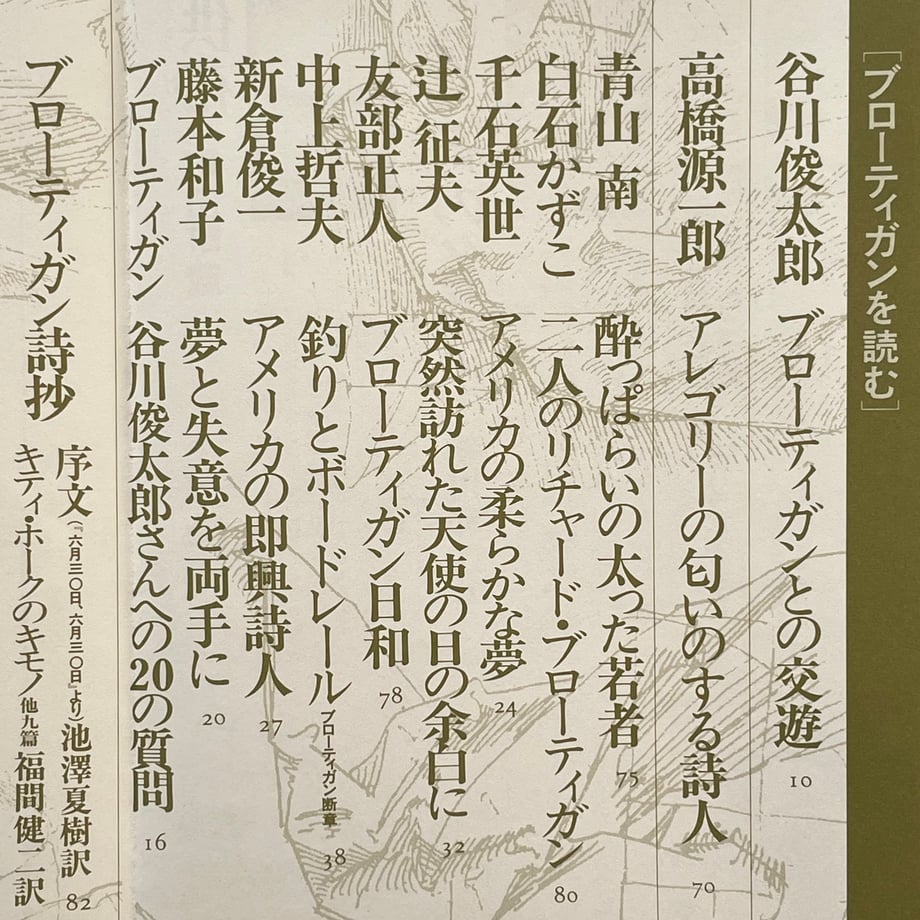 [ブローティガンを読む]
谷川俊太郎 ブローティガンとの交遊 10
高橋源一郎 アレゴリーの匂いのする詩人 70
青山 南 酔っぱらいの太った若者 75
白石かずこ 二人のリチャード・ブローティガン 80
千石英世 アメリカの柔らかな夢 24
辻 征夫 突然訪れた天使の日の余白に 32
友部正人 ブローティガン日和 78
中上哲夫 釣りとボードレール ブローティガン断章 38
新倉俊一 アメリカの即興詩人 27
藤本和子 夢と失意を両手に 20
ブローティガン 谷川俊太郎さんへの20の質問 16
ブローティガン詩抄
序文(『六月三〇日、六月三〇日』より) 池澤夏樹訳 82
キティ・ホークのキモノ 他九篇 福間健二訳